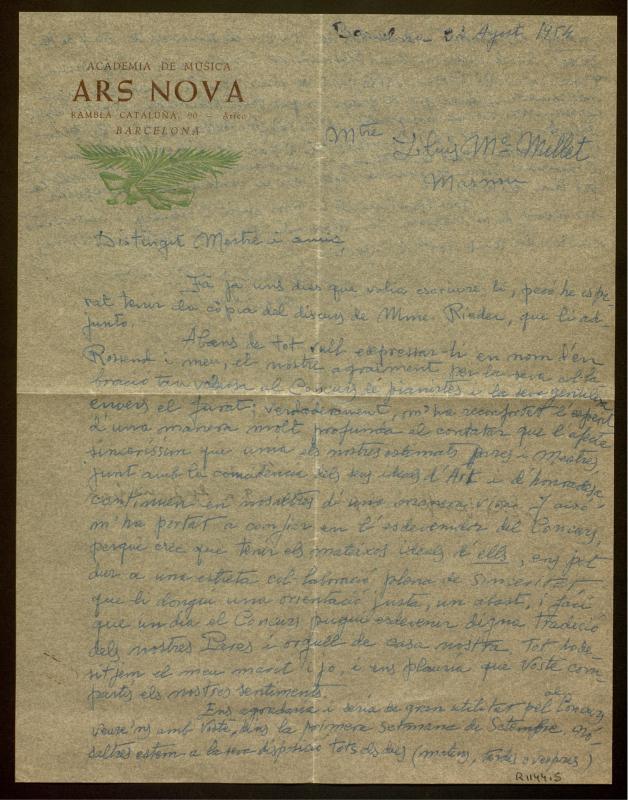 ACADEMIA DE MÚSICA
ARS NOVA
RAMBLA CATALUÑA, 90 - Ático
BARCELONA
Barcelona 21 Agost 1954
Mtre Lluis Mª Millet
Masnou
Distingit Mestre i amic,
Fà jà uns dies que volia escriure-li, però he espe-
rat tenir la còpia del discurs de Mme. Rieder, que li ad-
junto.
Abans de tot vull expressar-li en nom d'en
Rossend i meu, el nostre agraiment per la seva col·la-
boració tan valuosa al Concurs de pianistes i la seva gentilesa
envers el jurat; verdaderament, m'ha reconfortat l'esperit
d'una manera molt profunda al constatar que l'afecte
sincerissim que unia els nostres estimats pares i Mestres,
junt amb la coincidència dels seus ideals d'Art i d'honradesa
continuen en nosaltres d'una manera viva. I això
m'ha portat a confiar en l'esdevenidor del Concurs,
perquè crec que tenir els mateixos ideals d'ells, ens pot
dur a una estreta col·laboració plena de sinceritat
que li dongui una orientació justa, un abast, i faci
que un dia el Concurs pugui esdevenir digna tradició
dels nostres Pares i orgull de casa nostra. Tot ho de-
sitjem el meu marit i jo, i ens plauria que Vostè com-
partis els nostres sentiments.
Ens agradaria i seria de gran utilitat pel Concurs
veure'ns amb Vostè, dins la primera setmana de Setembre, no-
saltres estem a la seva disposició tots els dies (matins, tardes o vespres)
R.1144.S